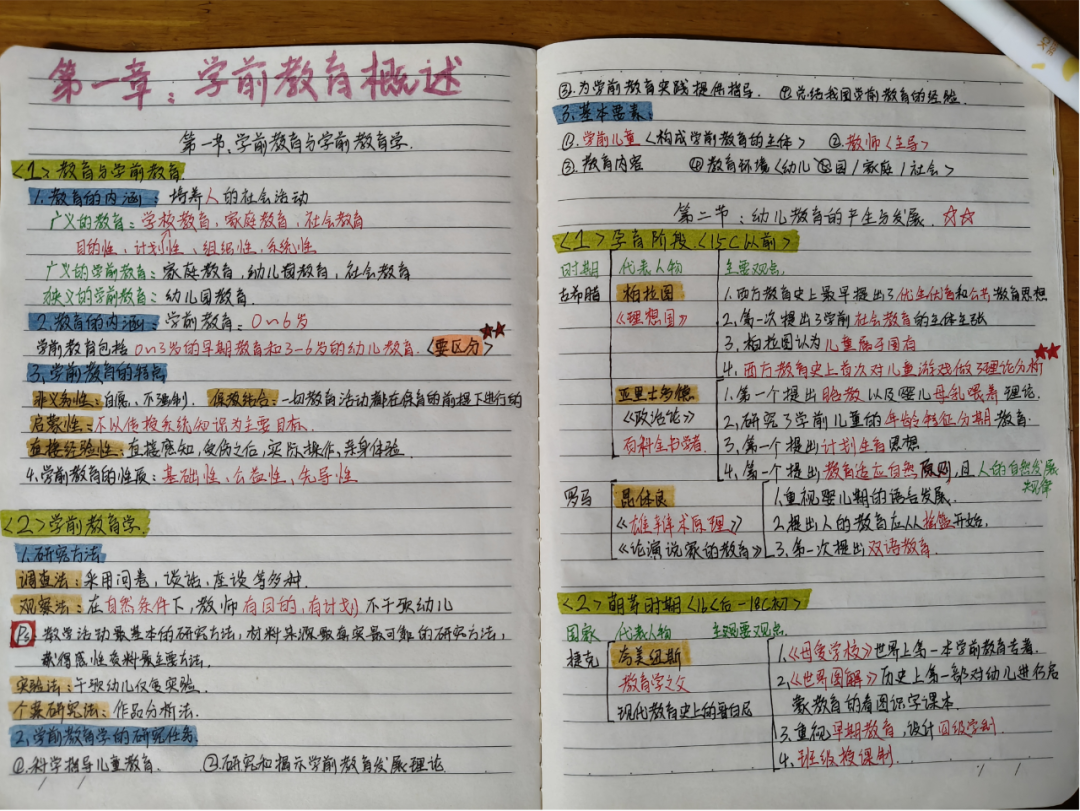 第一章:学前教育概述
第一节、学前教育与学前教育学.
<1>教育与学前教育
1.教育的内涵:培养人的社会活动
广义的教育:学校教育,家庭教育,社会教育
目的性、计划性、组织性、系统性
广义的学前教育:家庭教育,幼儿园教育,社会教育
狭义的学前教育:幼儿园教育.
2.教育的内涵:学前教育:0~6岁
学前教育包括0~3岁的早期教育和3-6岁的幼儿教育.<要区分>
3.学前教育的特点
非义务性:自愿、不强制. 保教结合:一切教育活动都在保育的前提下进行的
启蒙性:不以传授系统知识为主要目标.
直接经验性:直接感知,实际操作,亲身体验.
4.学前教育的性质:基础性、公益性、先导性
<2>学前教育学.
1.研究方法
调查法:采用问卷,谈话,座谈等多种.
观察法:在自然条件下,教师有目的,有计划不干预幼儿
Ps 教学活动最基本的研究方法,材料来源最真实最可靠的研究方法,
获得感性资料最主要方法.
实验法:干预幼儿反复实验.
个案研究法:作品分析法.
2.学前教育学的研究任务
①.科学指导儿童教育. ②.研究和揭示学前教育发展理论
③.为学前教育实践提供指导. ④.总结我国学前教育的经验.
3.基本要素:
①.学前儿童<构成学前教育的主体> ②.教师<主导>
③.教育内容 ④教育环境<幼儿园/家庭/社会>
第二节:幼儿教育的产生与发展.☆☆
<1>孕育阶段.<15C以前>
时期 代表人物 主要观点.
古希腊 柏拉图 1.西方教育史上最早提出了优生优育和公共教育思想
《理想国》 2.第一次提出了学前社会教育的主体主张
3.柏拉图认为儿童属于国有
4.西方教育史上首次对儿童游戏做了理论分析
亚里士多德 1.第一个提出胎教以及婴儿母乳喂养理论.
《政治论》 2.研究了学前儿童的年龄特征分期教育.
百科全书学者 3.第一个提出计划生育思想
4.第一个提出教育适应自然原则,且人的自然发展规律
罗马 昆体良 1.重视婴儿期的语言发展.
《雄辩术原理》 2.提出人的教育应从摇篮开始.
《论演说家的教育》 3.第一次提出双语教育.
<2>萌芽时期<16C后-18C初>
国家 代表人物 主要观点.
捷克 夸美纽斯 1.《母育学校》世界上第一本学前教育专著.
教育学之父 2.《世界图解》历史上第一部对幼儿进行启
现代教育史上的哥白尼 蒙教育的看图识字课本.
3.重视早期教育,设计四级学制.
4.班级授课制.